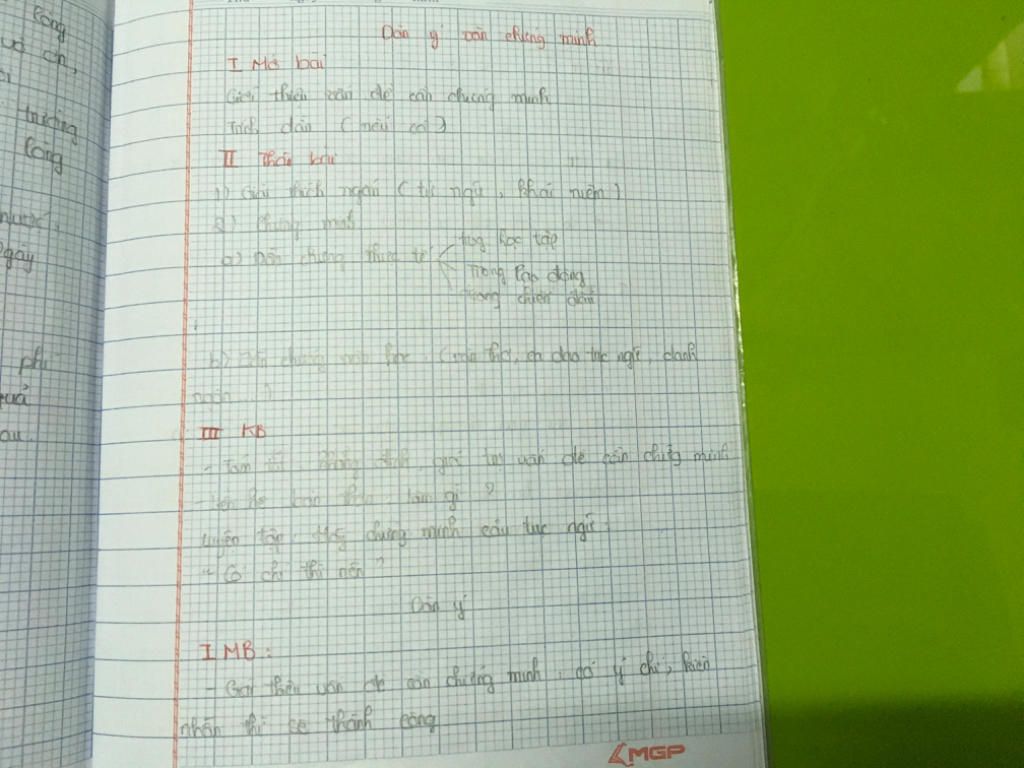 công
trường
công
nước,
ngày
phí
quả
au.
Dàn ý văn chứng minh
I Mở bài
Giới thiệu vấn đề cần chứng minh
Trích dẫn ( nếu có )
II Thân bài
1) Giải thích ngắn ( từ ngữ , khái niệm )
2) Chứng minh
a) Dẫn chứng thực tế
trong học tập
trong lao động
trong chiến đấu
b) Dẫn chứng văn học. ( thơ, ca dao tục ngữ, danh
ngôn ... )
III KB
- Tóm tắt, khẳng định, giá trị vấn đề cần chứng minh
- Liên hệ bản thân làm gì ?
Luyện tập. Hãy chứng minh câu tục ngữ:
" Có chí thì nên "
Dàn ý
I MB :
- Giới thiệu vấn đề cần chứng minh : có ý chí, kiên
nhẫn thì sẽ thành công
MGP